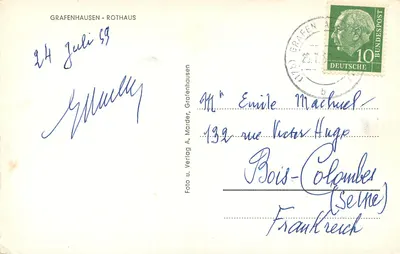 GRAFENHAUSEN - ROTHAUS
24 Juli 59
Foto u. Verlag A. Morder, Grafenhausen
GRAFEN
b
10
DEUTSCHE
BUNDESPOST
Mr Emile Machuel
132 rue Victor Hugo
Bois-Colombes
(Seine)
Frankreich